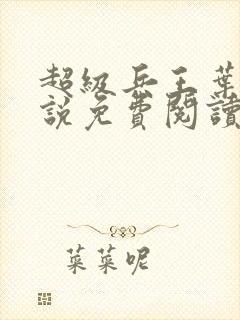 超级兵王葉
說免費閱讀
菜菜呢